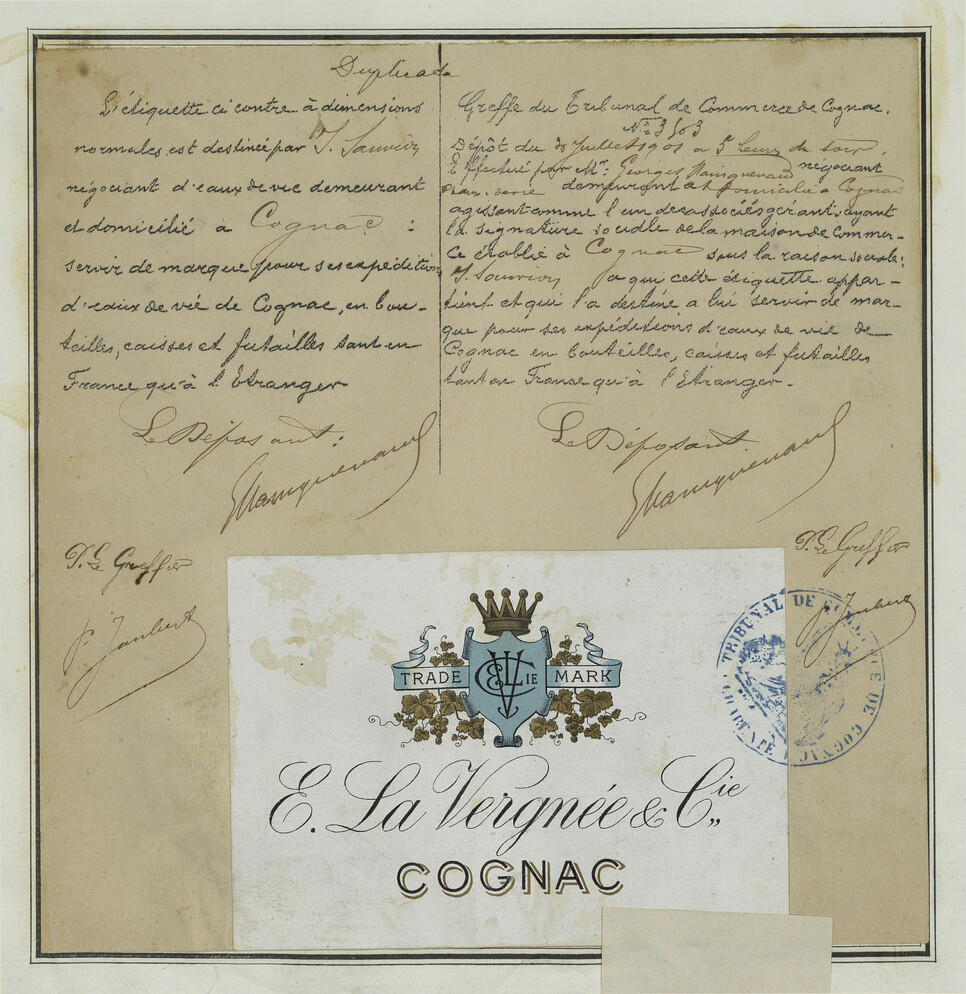 Duplicata
L'étiquette ci contre à dimensions
normales, est destinée par J. Sauvion
négociant d'eaux de vie demeurant
et domicilié à Cognac :
servir de marque pour ses expéditions
d'eaux de vie de Cognac, en bou-
teilles, caisses et futailles tant en
France qu'à l'Etranger
Le Déposant :
GHaurquenaud
P. Le Greffier
P. Jaubert
Greffe du Tribunal de Commerce de Cognac.
N° 3503
Dépôt du Juillet 1901 à 5 heures du soir.
Effectué par Mr. Georges négociant
demeurant et domicilié à Cognac
agissant comme l'un des associés gérants ayant
la signature sociale de la maison de Commer-
ce établie à Cognac sous la raison sociale:
J. Sauvion à qui cette étiquette appar-
tient et qui l'a destine a lui servir de mar-
que pour ses expéditions d'eaux de vie de
Cognac en bouteilles, caisses et futailles
tant en France qu'à l'Etranger.
Le Déposant
P. Le Greffier
P. Jaubert
TRIBUNAL DE COMMERCE DE COGNAC
CHARENTE
TRADE MARK
E LV Cie
E. La Vergnée & Cie
COGNAC